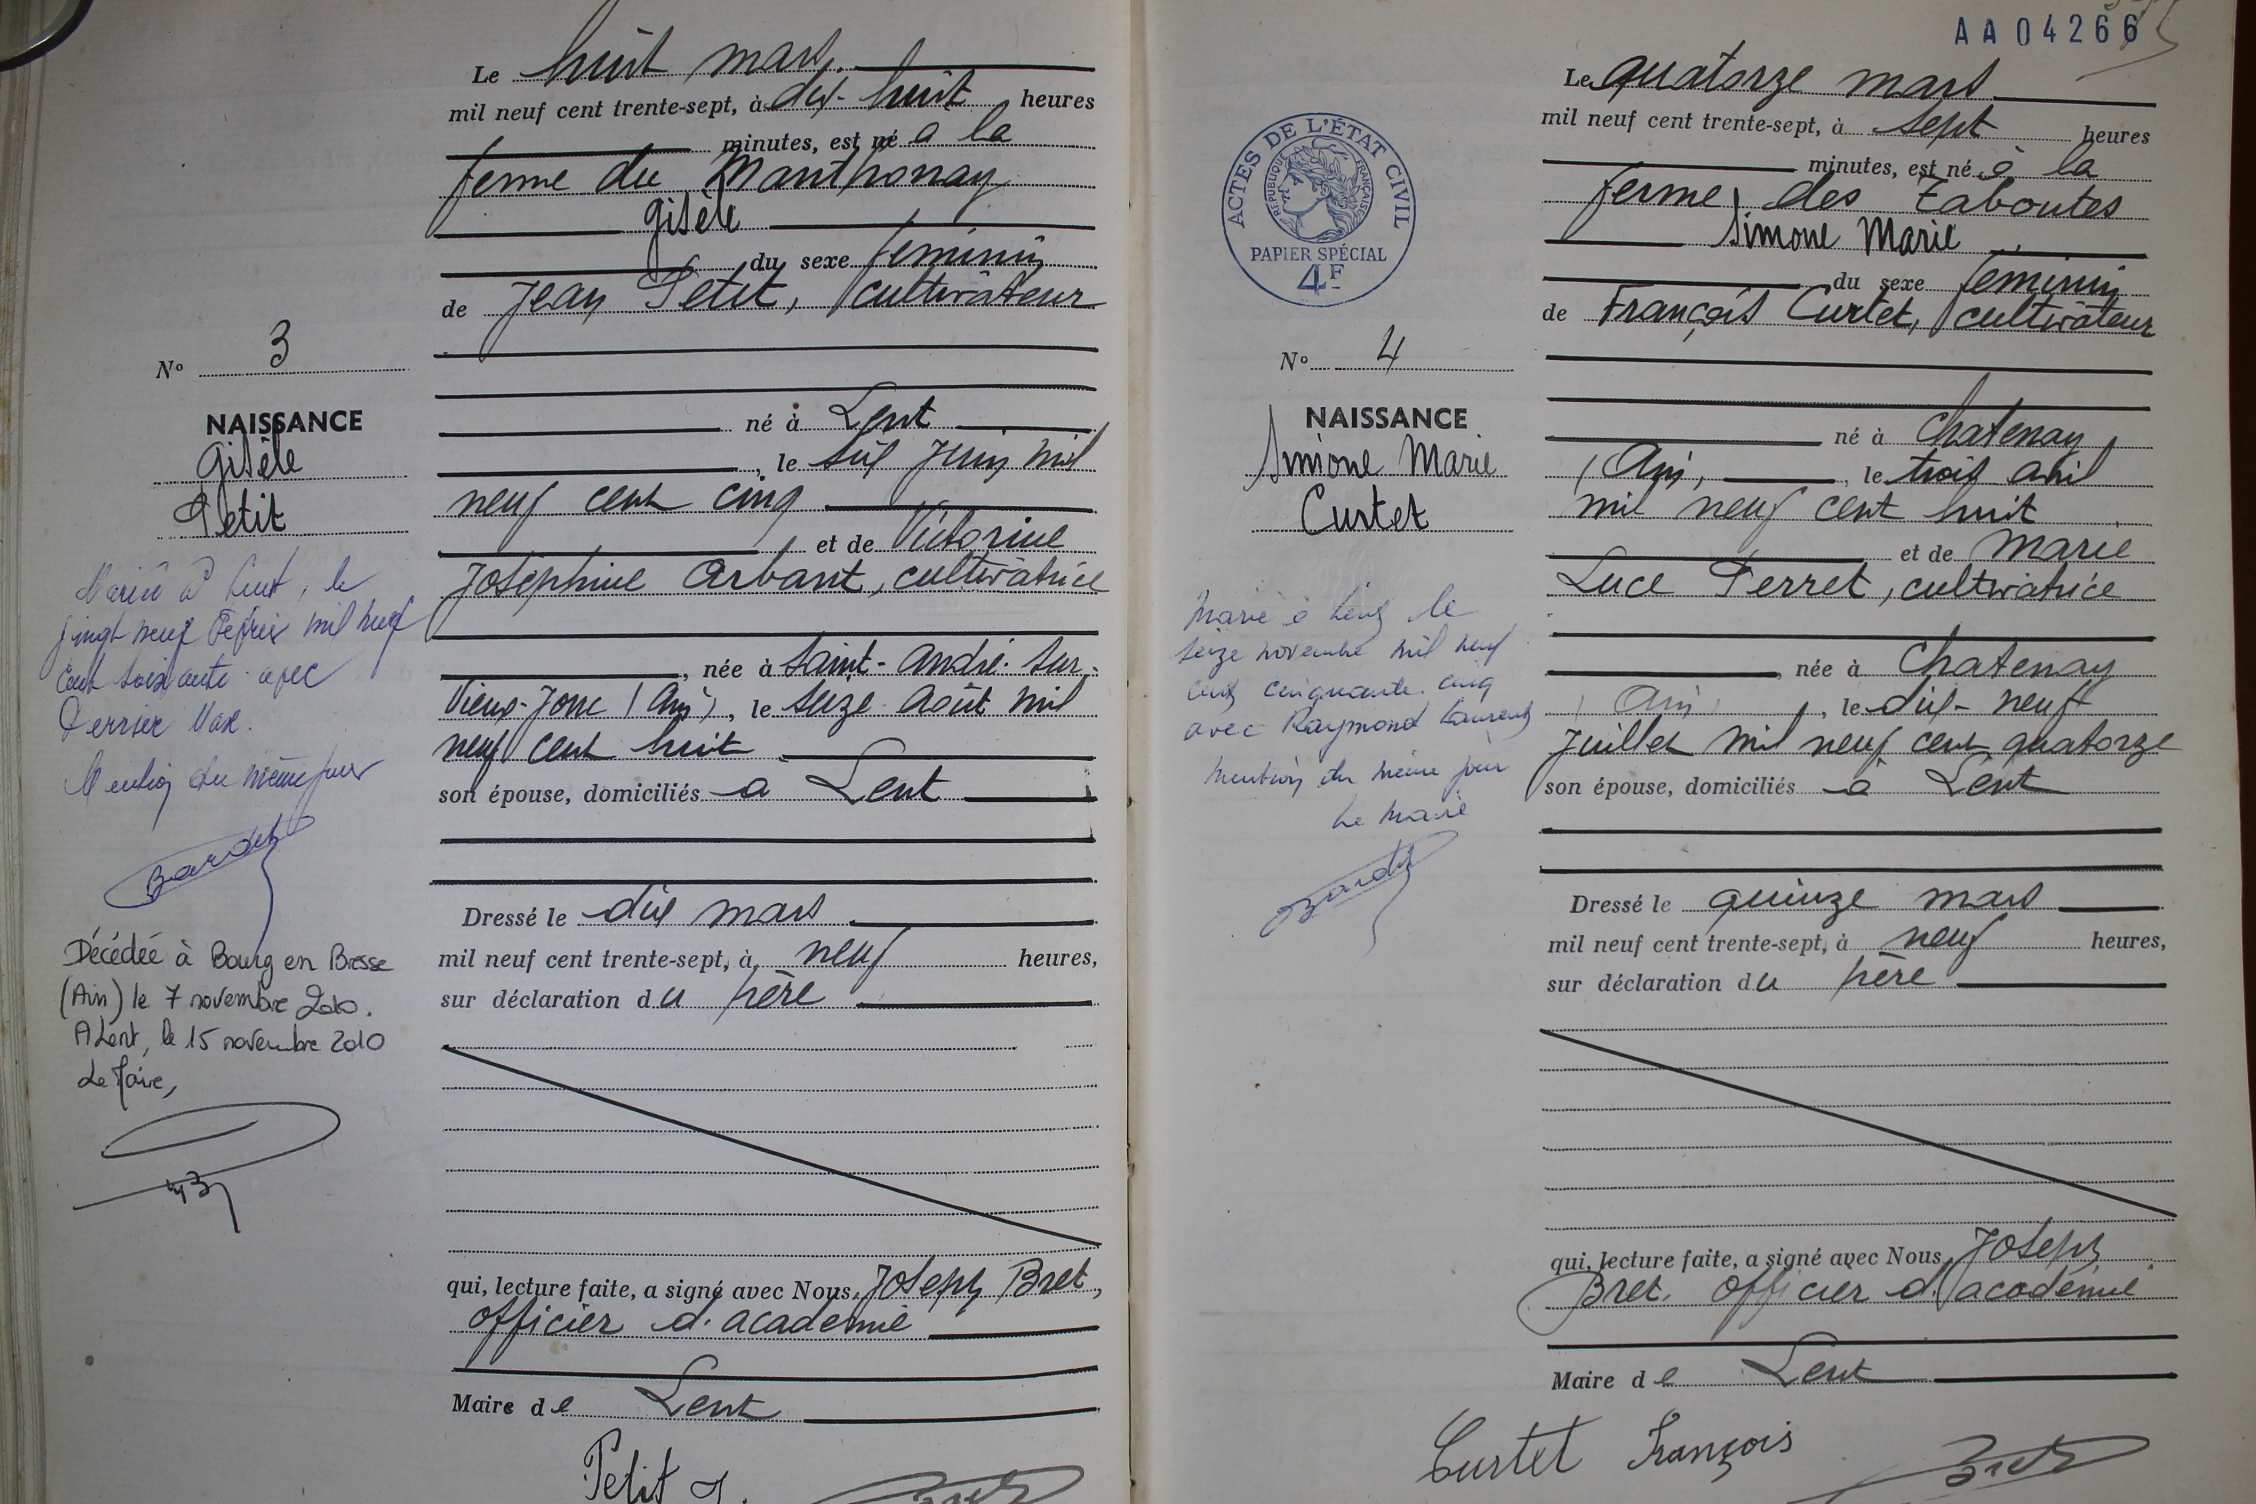 Le huit mars
mil neuf cent trente-sept, à dix-huit heures
minutes, est né à la
ferme du Manthonay
Gisèle
du sexe féminin
de Jean Petit, cultivateur
né à Lent
, le six juin mil
neuf cent cinq
et de Victorine
Joséphine Arbant, cultivatrice
, née à Saint-André-sur-
Vieux-Jonc (Ain), le seize août mil
neuf cent huit
son épouse, domiciliés à Lent
Dressé le dix mars
mil neuf cent trente-sept, à neuf heures,
sur déclaration du père
qui, lecture faite, a signé avec Nous, Joseph Bret,
officier d'académie
Maire de Lent
Petit J.
N° 3
NAISSANCE
Gisèle
Petit
Mariée à Lent, le
vingt neuf Février mil neuf
cent soixante avec
Perrier Max.
Mention du même jour
Décédée à Bourg en Bresse
(Ain) le 7 novembre 2010.
A Lent, le 15 novembre 2010
Le Maire,
AA04266
Le quatorze mars
mil neuf cent trente-sept, à sept heures
minutes, est né à la
ferme des Taboutes
Simone Marie
du sexe féminin
de François Curtet, cultivateur
né à Chatenay
(Ain), le trois avril
mil neuf cent huit
et de Marie
Luce Perret, cultivatrice
, née à Chatenay
(Ain), le dix-neuf
juillet mil neuf cent quatorze
son épouse, domiciliés à Lent
Dressé le quinze mars
mil neuf cent trente-sept, à neuf heures,
sur déclaration du père
qui, lecture faite, a signé avec Nous, Joseph
Bret, officier d'académie
Maire de Lent
Curtet François
Bret
ACTES DE L'ÉTAT CIVIL
RÉPUBLIQUE FRANÇAISE
PAPIER SPÉCIAL
4F
N° 4
NAISSANCE
Simone Marie
Curtet
Marié à Lent le
seize novembre mil neuf
cent cinquante cinq
avec Raymond Laurent
Mention du même jour
Le Maire